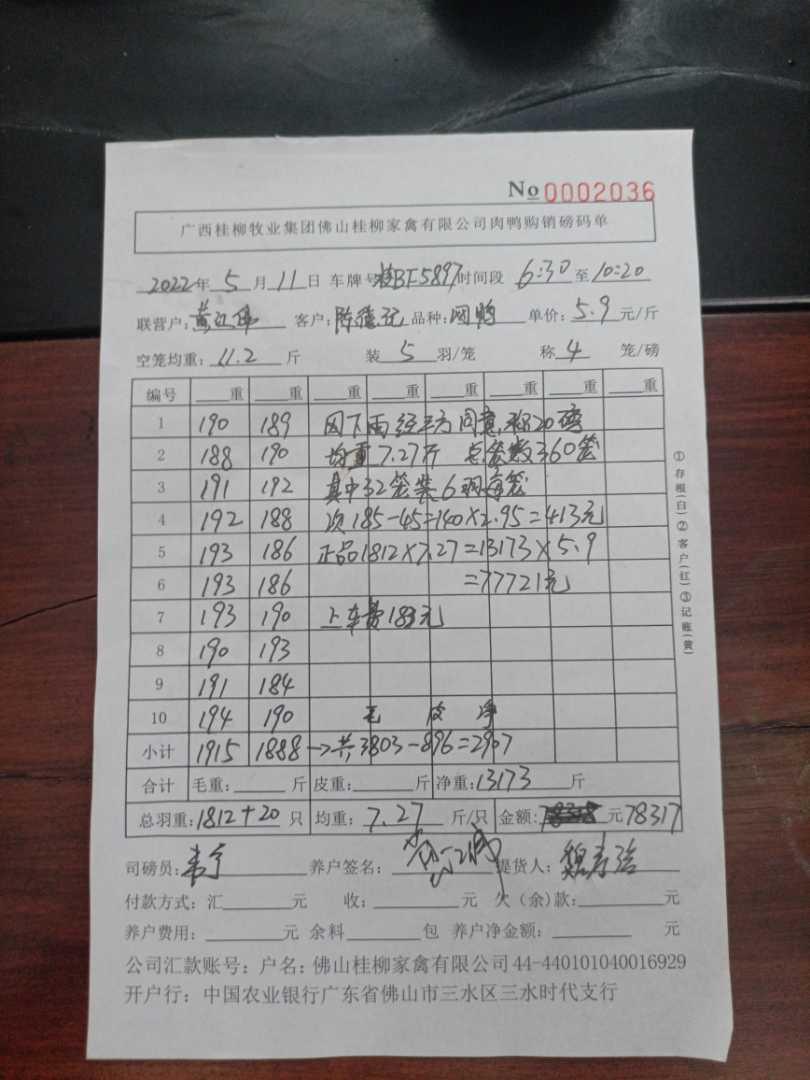 No 0002036
广西桂柳牧业集团佛山桂柳家禽有限公司肉鸭购销磅码单
2022年 5月 11日 车牌号:桂BF5897 时间段 6:30 至 10:20
联营户: 黄 客户: 陈 记 品种: 肉鸭 单价: 5.9 元/斤
空笼均重: 11.2 斤 装 5 羽/笼 称 4 笼/磅
编号 重 重 重 重 重 重 重
1 190 189 因下雨经三方同意,称20磅
2 188 190 均重7.27斤 总笼数360笼
3 191 192 其中32笼装6羽每笼
4 192 188 次185-45=140×2.95=413元
5 193 186 正品1812×7.27=13173×5.9
6 193 186 =77721元
7 193 190 上车费183元
8 190 193
9 191 184
10 194 190 毛 皮 净
小计 1915 1888 →共3803-896=2907
合计 毛重: 斤 皮重: 斤 净重:13173 斤
总羽重:1812+20 只 均重: 7.27 斤/只 金额: 元 78317
司磅员: 韦宁 养户签名: 提货人: 魏
付款方式:汇 元 收: 元 欠(余)款: 元
养户费用: 元 余料 包 养户净金额: 元
公司汇款账号:户名:佛山桂柳家禽有限公司44-440101040016929
开户行:中国农业银行广东省佛山市三水区三水时代支行
①存根(白)②客户(红)③记账(黄)